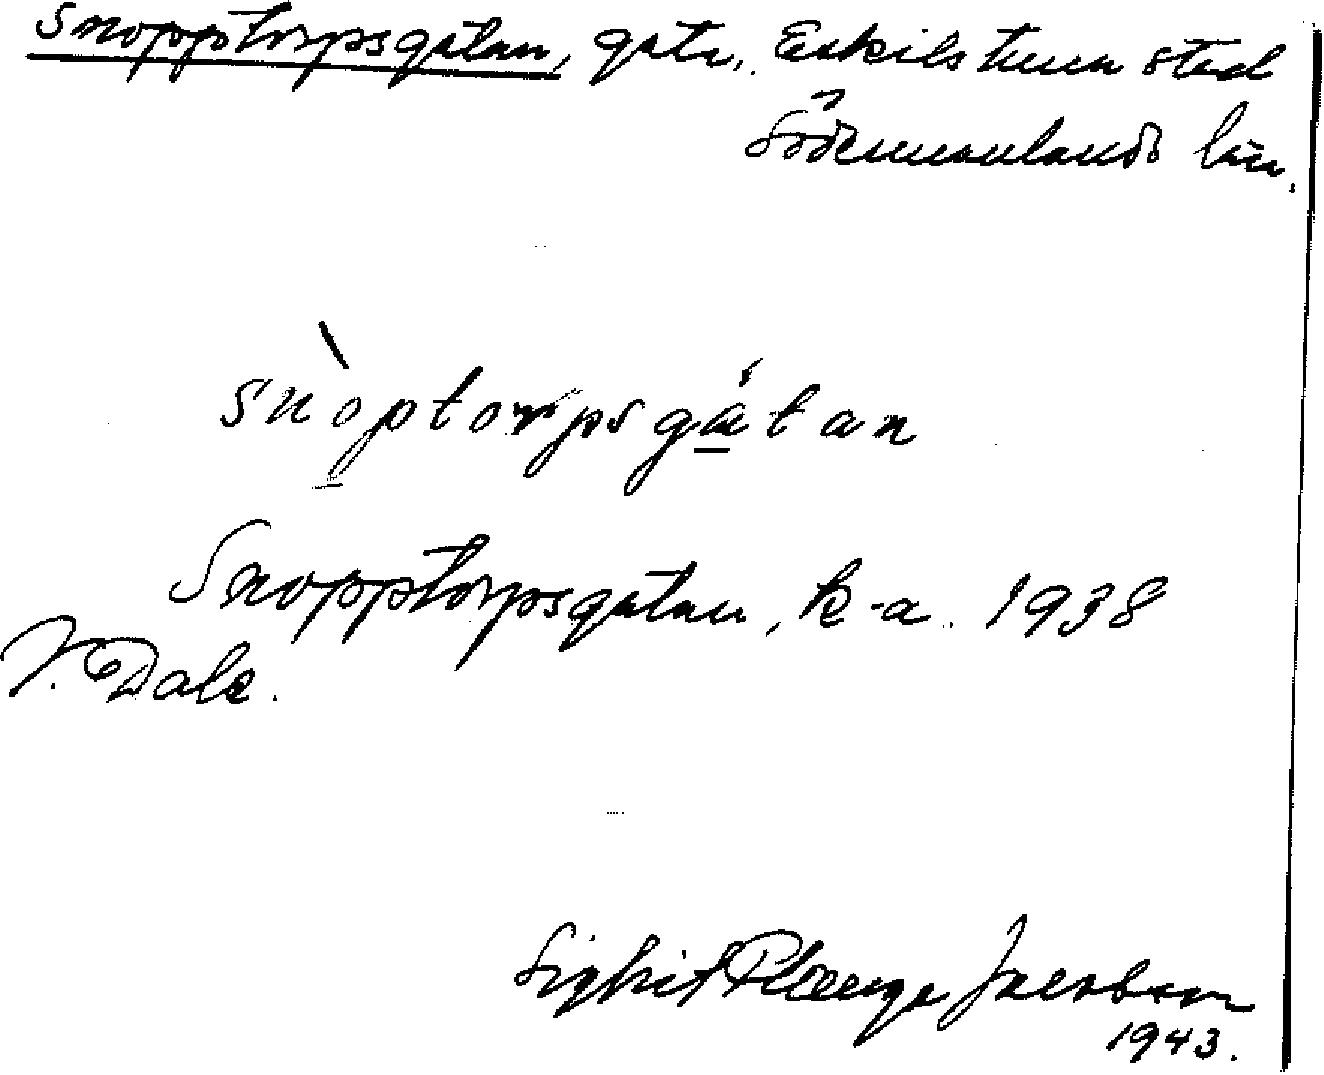 Snopptorpsgatan, gata, Eskilstuna stad
Södermanlands län.
snòptorpsgátan
Snopptorpsgatan, k-a. 1938
V. Dale.
Sigbrit Plænge Jacobson
1943.